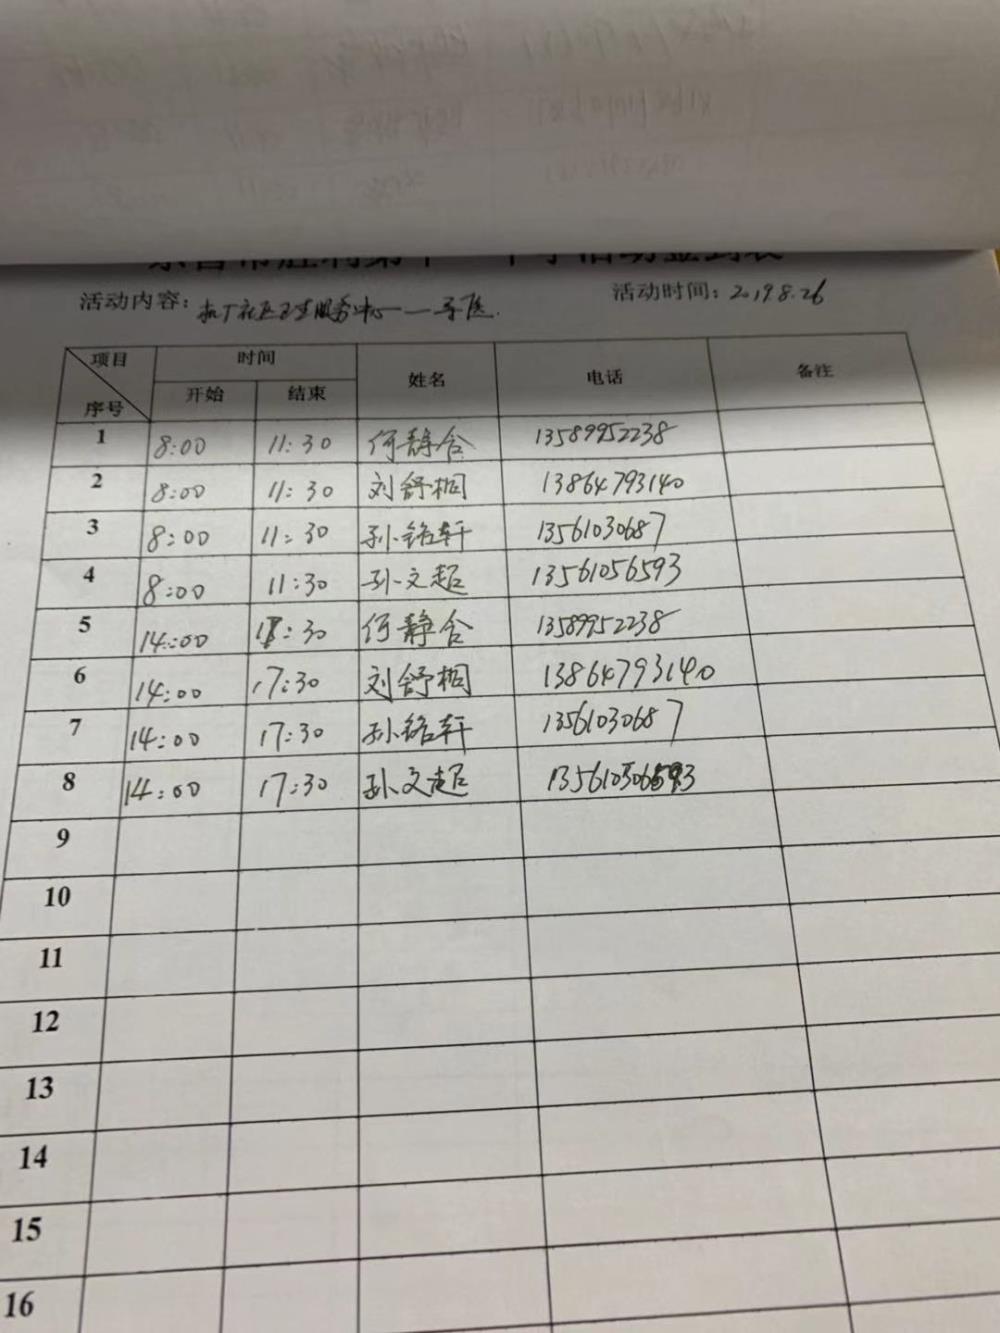 活动内容： 社区卫生服务中心——导医.
活动时间：2019.8.26
项目 时间 姓名 电话 备注
序号 开始 结束
1 8:00 11:30 何静含 13589952238
2 8:00 11:30 刘舒桐 13864793140
3 8:00 11:30 孙铭轩 13561030687
4 8:00 11:30 孙文超 13561056593
5 14:00 17:30 何静含 13589952238
6 14:00 17:30 刘舒桐 13864793140
7 14:00 17:30 孙铭轩 13561030687
8 14:00 17:30 孙文超
9
10
11
12
13
14
15
16